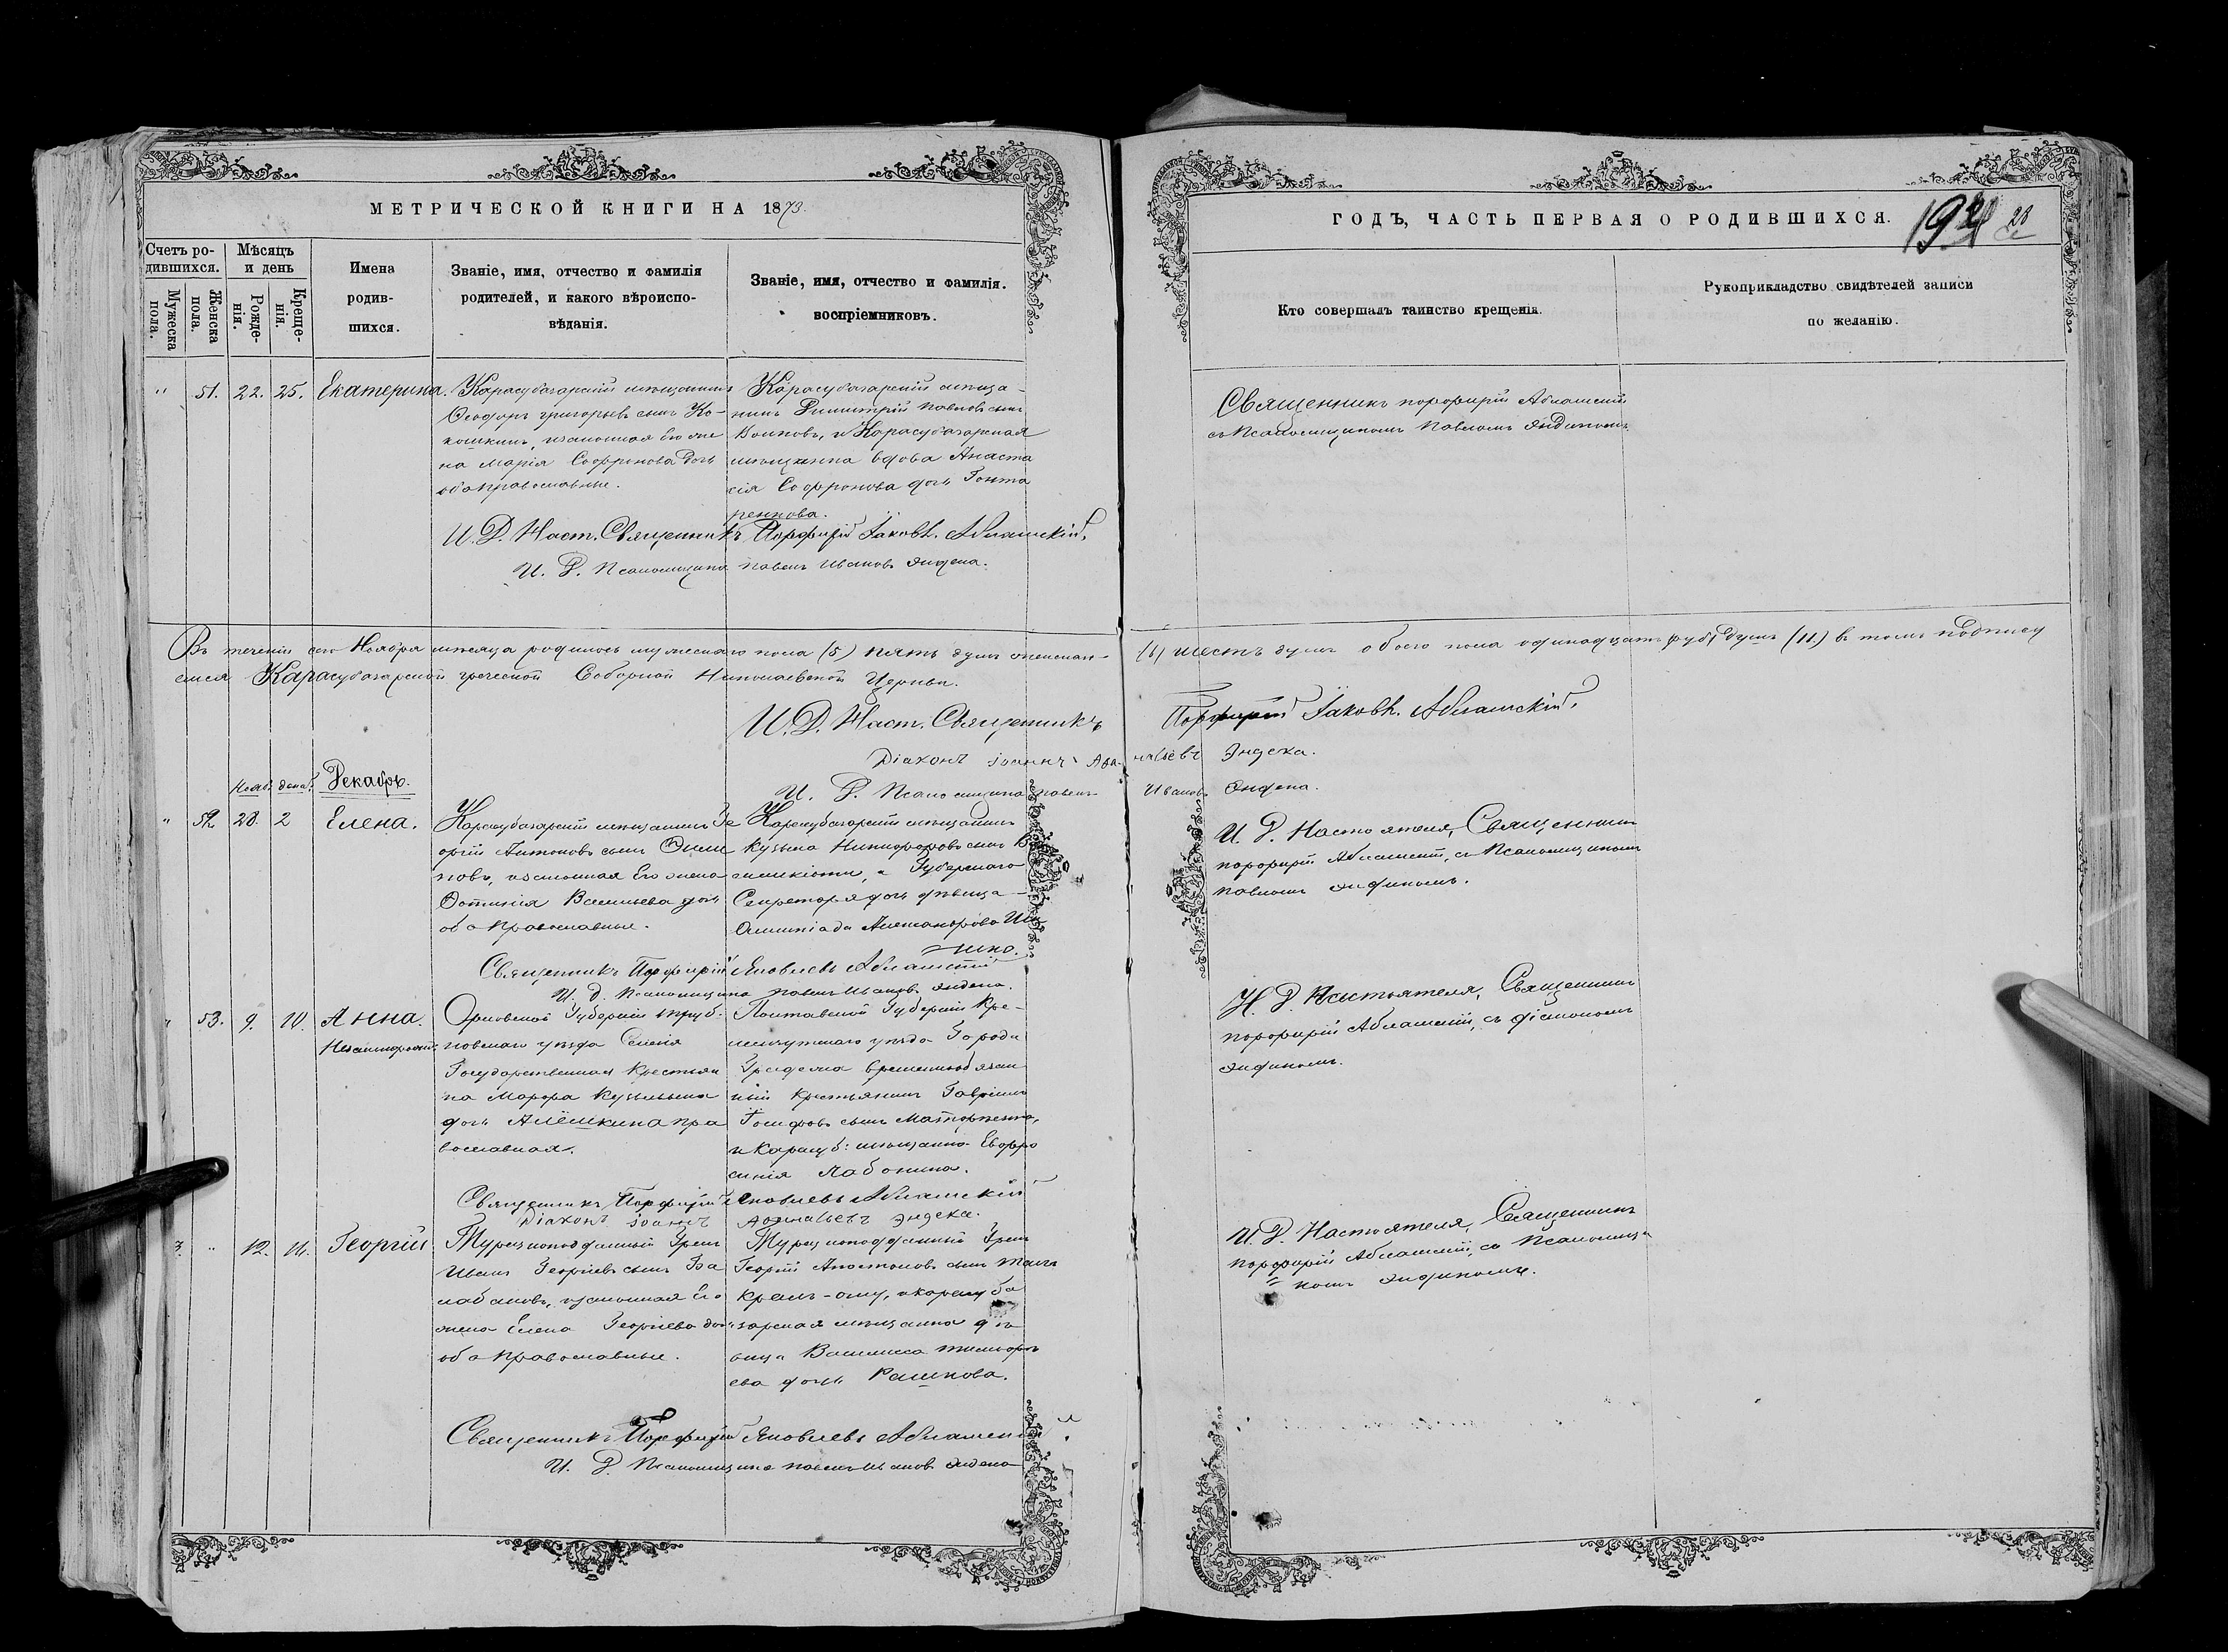 МЕТРИЧЕСКОЙ КНИГИ НА 1873.
Счетъ ро-
дившихся.
Мужеска
пола.
Женска
пола.
Мѣсяцъ
и день
Рожде-
нія.
Креще-
нія.
Имена
родив-
шихся.
Званіе, имя, отчество и фамилія
родителей, и какого вѣроиспо-
вѣданія.
Званіе, имя, отчество и фамилія.
воспріемниковъ.
" 51. 22. 25. Екатерина.
Карасубазарскій мѣщанинъ
Ѳеодоръ григорьевъ сынъ Ко-
кошкинъ, изаконная его же
на Марія Софронова дочь
оба православные.
Карасубазарскій мѣща-
нинъ Димитрій павловъ сынъ
и Карасубазарская
мѣщанка вдова Анаста
сія Софронова дочь Гонта
ренкова.
И. Д. Наст. Священникъ Порфирій Іаковл. Абламскій.
И. Д. Псаломщика павелъ Ивановъ
Въ теченіи сего Ноября мѣсяца родилось мужескаго пола (5) пять душъ женскаго
емся Карасубазарской греческой Соборной Николаевской Церкви.
И. Д. Наст. Священникъ
Діаконъ іоаннъ
И. Д. Псаломщика павелъ
Нояб. декаб. Декабрь.
" 52. 28. 2 Елена.
Карасубазарскій мѣщанинъ Ге
оргій Антоновъ сынъ
новъ, изаконная Его жена
Васильева дочь
оба православные.
Карасубазарскій мѣщанинъ
Кузьма Никифоровъ сынъ
и Губернскаго
Секретаря дочь дѣвица
Олимпіада Александрова
Священникъ Порфирій Яковлевъ Абламскій
И. д. псаломщика павелъ Ивановъ
" 53. 9. 10. Анна.
Орловской Губерніи
уѣзда Селенія
Государственная Крестьян
на Марфа Кузьмина
дочь Алёшкина пра
вославная.
Полтавской Губерніи Кре-
менчугскаго уѣзда Города
временнообязан
ный Крестьянинъ Гавріилъ
Іосифовъ сынъ
и Карасуб: мѣщанка Евфро
синія Лабонина.
Священникъ Порфирій Яковлевъ Абламскій
Діаконъ іоаннъ
" 12. 16. Георгій
Турецкоподданный Грекъ
Иванъ Георгіевъ сынъ
изаконная Его
жена Елена Георгіева дочь
оба православные.
Турецкоподданный Грекъ
Георгій Апостоловъ сынъ
и карасуба
зарская мѣщанка дѣ
вица Василисса
ева дочь Рашкова.
Священникъ Порфирій Яковлевъ Абламскій
И. Д. Псаломщика павелъ Ивановъ
ГОДЪ, ЧАСТЬ ПЕРВАЯ О РОДИВШИХСЯ.
28
Кто совершалъ таинство крещенія.
Рукоприкладство свидѣтелей записи
по желанію.
Священникъ порфирій Абламскій
съ Псаломщикомъ Павломъ
(6) шесть душъ обоего пола одинадцать душъ (11.) в томъ подпису
Порфирій Іаковл. Абламскій.
Эндека.
Ивановъ Эндека.
И. Д. Настоятеля, Священникъ
порфирій Абламскій, съ Псаломщикомъ
павломъ
И. Д. Настоятеля, Священникъ
порфирій Абламскій, съ діакономъ
И. Д. Настоятеля, Священникъ
порфирій Абламскій, съ Псаломщи
комъ